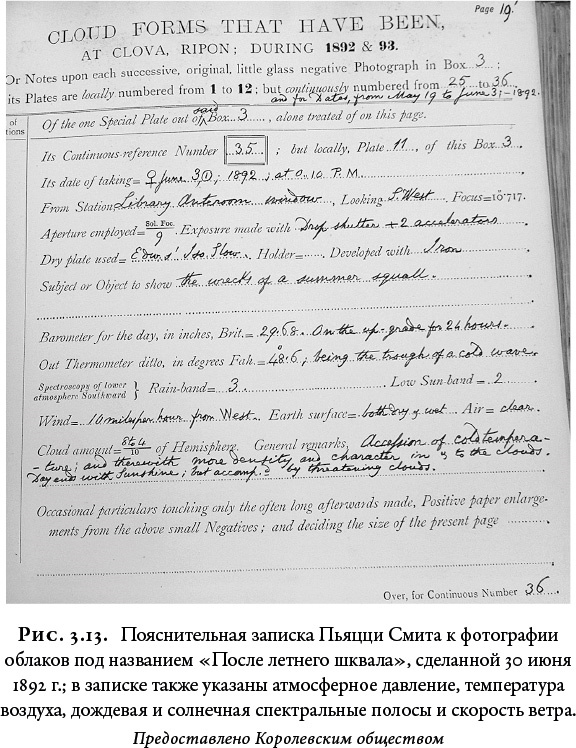 Page 19.
CLOUD FORMS THAT HAVE BEEN,
AT CLOVA, RIPON; DURING 1892 & 93.
Or Notes upon each successive, original, little glass negative Photograph in Box 3;
its Plates are locally numbered from 1 to 12; but continuously numbered from 25 to 36
and for Dates, from May 19 to June 3; - 1892.
of
tions
Of the one Special Plate out of said Box 3, alone treated of on this page.
Its Continuous-reference Number 35; but locally, Plate 11, of this Box 3.
Its date of taking= ♀ June 3, 1892; at 0.10 P.M.
From Station Library Anteroom window, Looking S. West. Focus=10.717.
Aperture employed= Sol. Foc. / 9. Exposure made with Drop shutter + 2 accelerators
Dry plate used= Edws' Iso. Slow. Holder= Developed with Iron
Subject or Object to show the wrecks of a summer squall.
Barometer for the day, in inches, Brit.= 29.68. On the up-grade for 24 hours.
Out Thermometer ditto, in degrees Fah.= 48.6; being the trough of a cold wave.
Spectroscopy of lower atmosphere Southward } Rain-band= 3 Low Sun-band= 2
Wind= 10 miles per hour from West. Earth surface= both dry & wet. Air= clear.
Cloud amount= 8 to 4 / 10 of Hemisphere. General remarks, Accession of cold tempera-
-ture; and therewith more density and character in & to the clouds.
Day ends with Sunshine; but accompd. by threatening clouds.
Occasional particulars touching only the often long afterwards made, Positive paper enlarge-
ments from the above small Negatives; and deciding the size of the present page
Over, for Continuous Number 36
Рис. 3.13. Пояснительная записка Пьяцци Смита к фотографии
облаков под названием «После летнего шквала», сделанной 30 июня
1892 г.; в записке также указаны атмосферное давление, температура
воздуха, дождевая и солнечная спектральные полосы и скорость ветра.
Предоставлено Королевским обществом